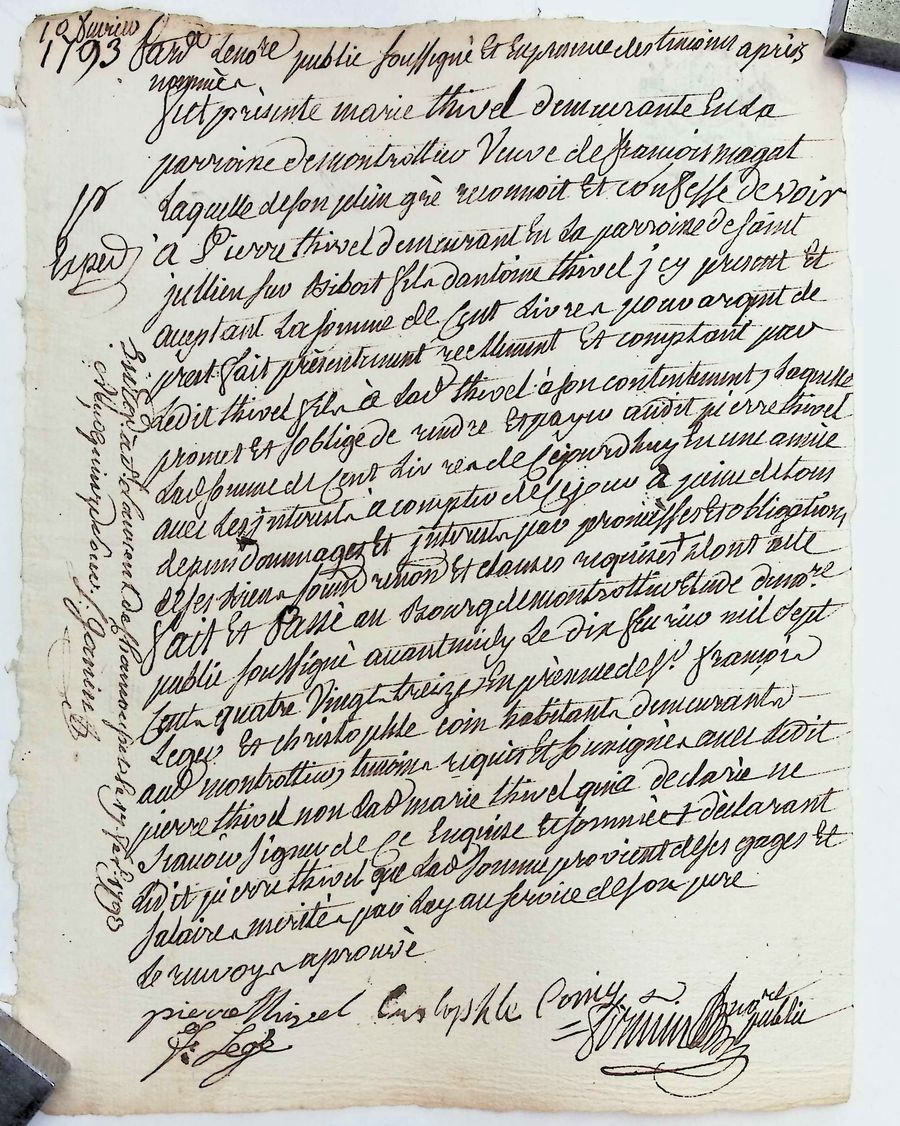 10 fevrier
1793
Pard^t le no^re public soussigné et en presence des temoins après
nommés
fut présente marie thivel demeurante en la
parroisse de montrottier Veuve de françois magat
laquelle de son plein gré reconnoit et confesse devoir
à Pierre thivel demeurant en la parroisse de saint
jullien sur Bibost fils d'antoine thivel j cy present et
aceptant la somme de cent livres pour argent de
prest fait présentement reellement et comptant par
ledit thivel fils à lad^e thivel à son contentement, laquelle
promet et s'oblige de rendre et payer audit pierre thivel
lad^e somme de cent livres de cejourdhuy en une année
avec les interests à compter de ce jour à peine de tous
depens dommages et interests par promesses et obligations
de ses biens soumd renond et clauses requises + dont acte
fait et Passé au Bourg de montrottier Etude dunore
public soussigné avant midy le dix fevrier mil sept
cents quatre Vingt treize, en présence de s^r. françois
Leger et christophle coin habitants demeurants
aud^t montrottier, temoins requis et soussignés avec ledit
pierre thivel non lad^e marie thivel qui a declarée ne
scavoir signer de ce enquise et sommée + déclarant
ledit pierre thivel que lad^e somme provient de ses gages et
salaires mérités par luy au service de son pere
le renvoy aprouvé
pierre thivel
christophle Coing
f^s Legé
no^re public
Exped
St laurent de Chamousset le 17 fev^r. 1793